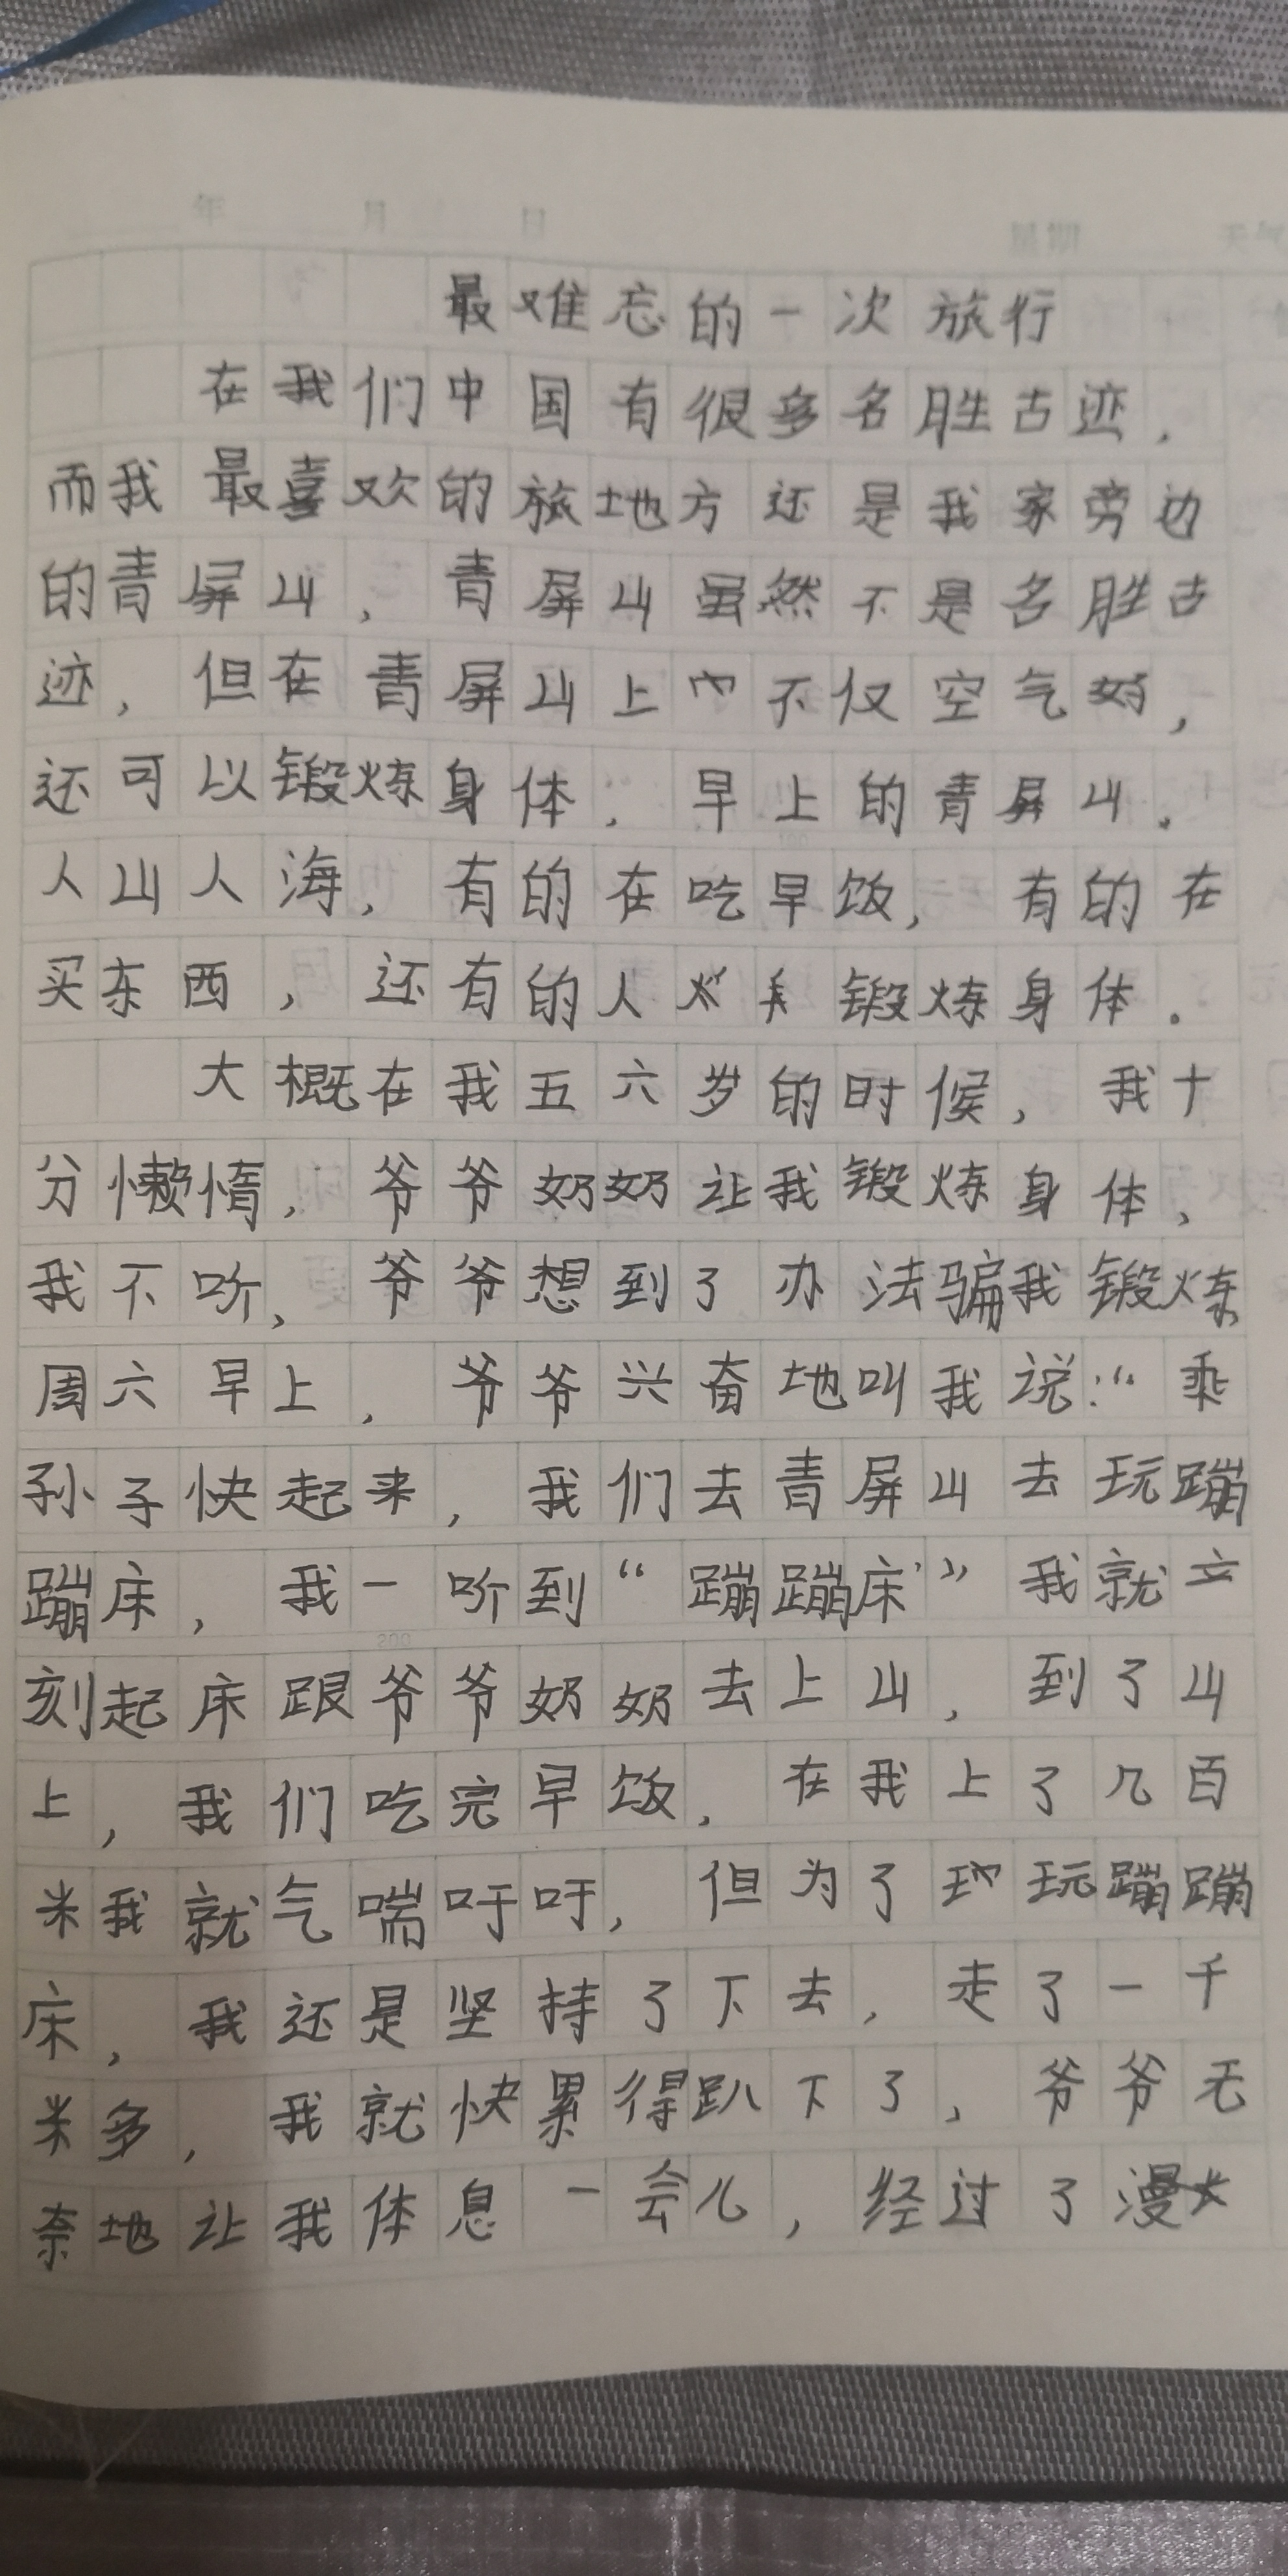 年 月 日 星期 天气
最难忘的一次旅行
在我们中国有很多名胜古迹，
而我最喜欢的旅地方还是我家旁边
的青屏山，青屏山虽然不是名胜古
迹，但在青屏山上不仅空气好，
还可以锻炼身体，早上的青屏山。
人山人海，有的在吃早饭，有的在
买东西，还有的人锻炼身体。
大概在我五六岁的时候，我十
分懒惰，爷爷奶奶让我锻炼身体，
我不听，爷爷想到了办法骗我锻炼，
周六早上，爷爷兴奋地叫我说：“乖
孙子快起来，我们去青屏山去玩蹦
蹦床，我一听到“蹦蹦床”我就立
刻起床跟爷爷奶奶去上山，到了山
上，我们吃完早饭，在我上了几百
米我就气喘吁吁，但为了玩蹦蹦
床，我还是坚持了下去，走了一千
米多，我就快累得趴下了，爷爷无
奈地让我体息一会儿，经过了漫长